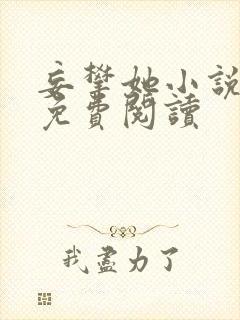 妄攀她小說
免費閱讀
我盡力了